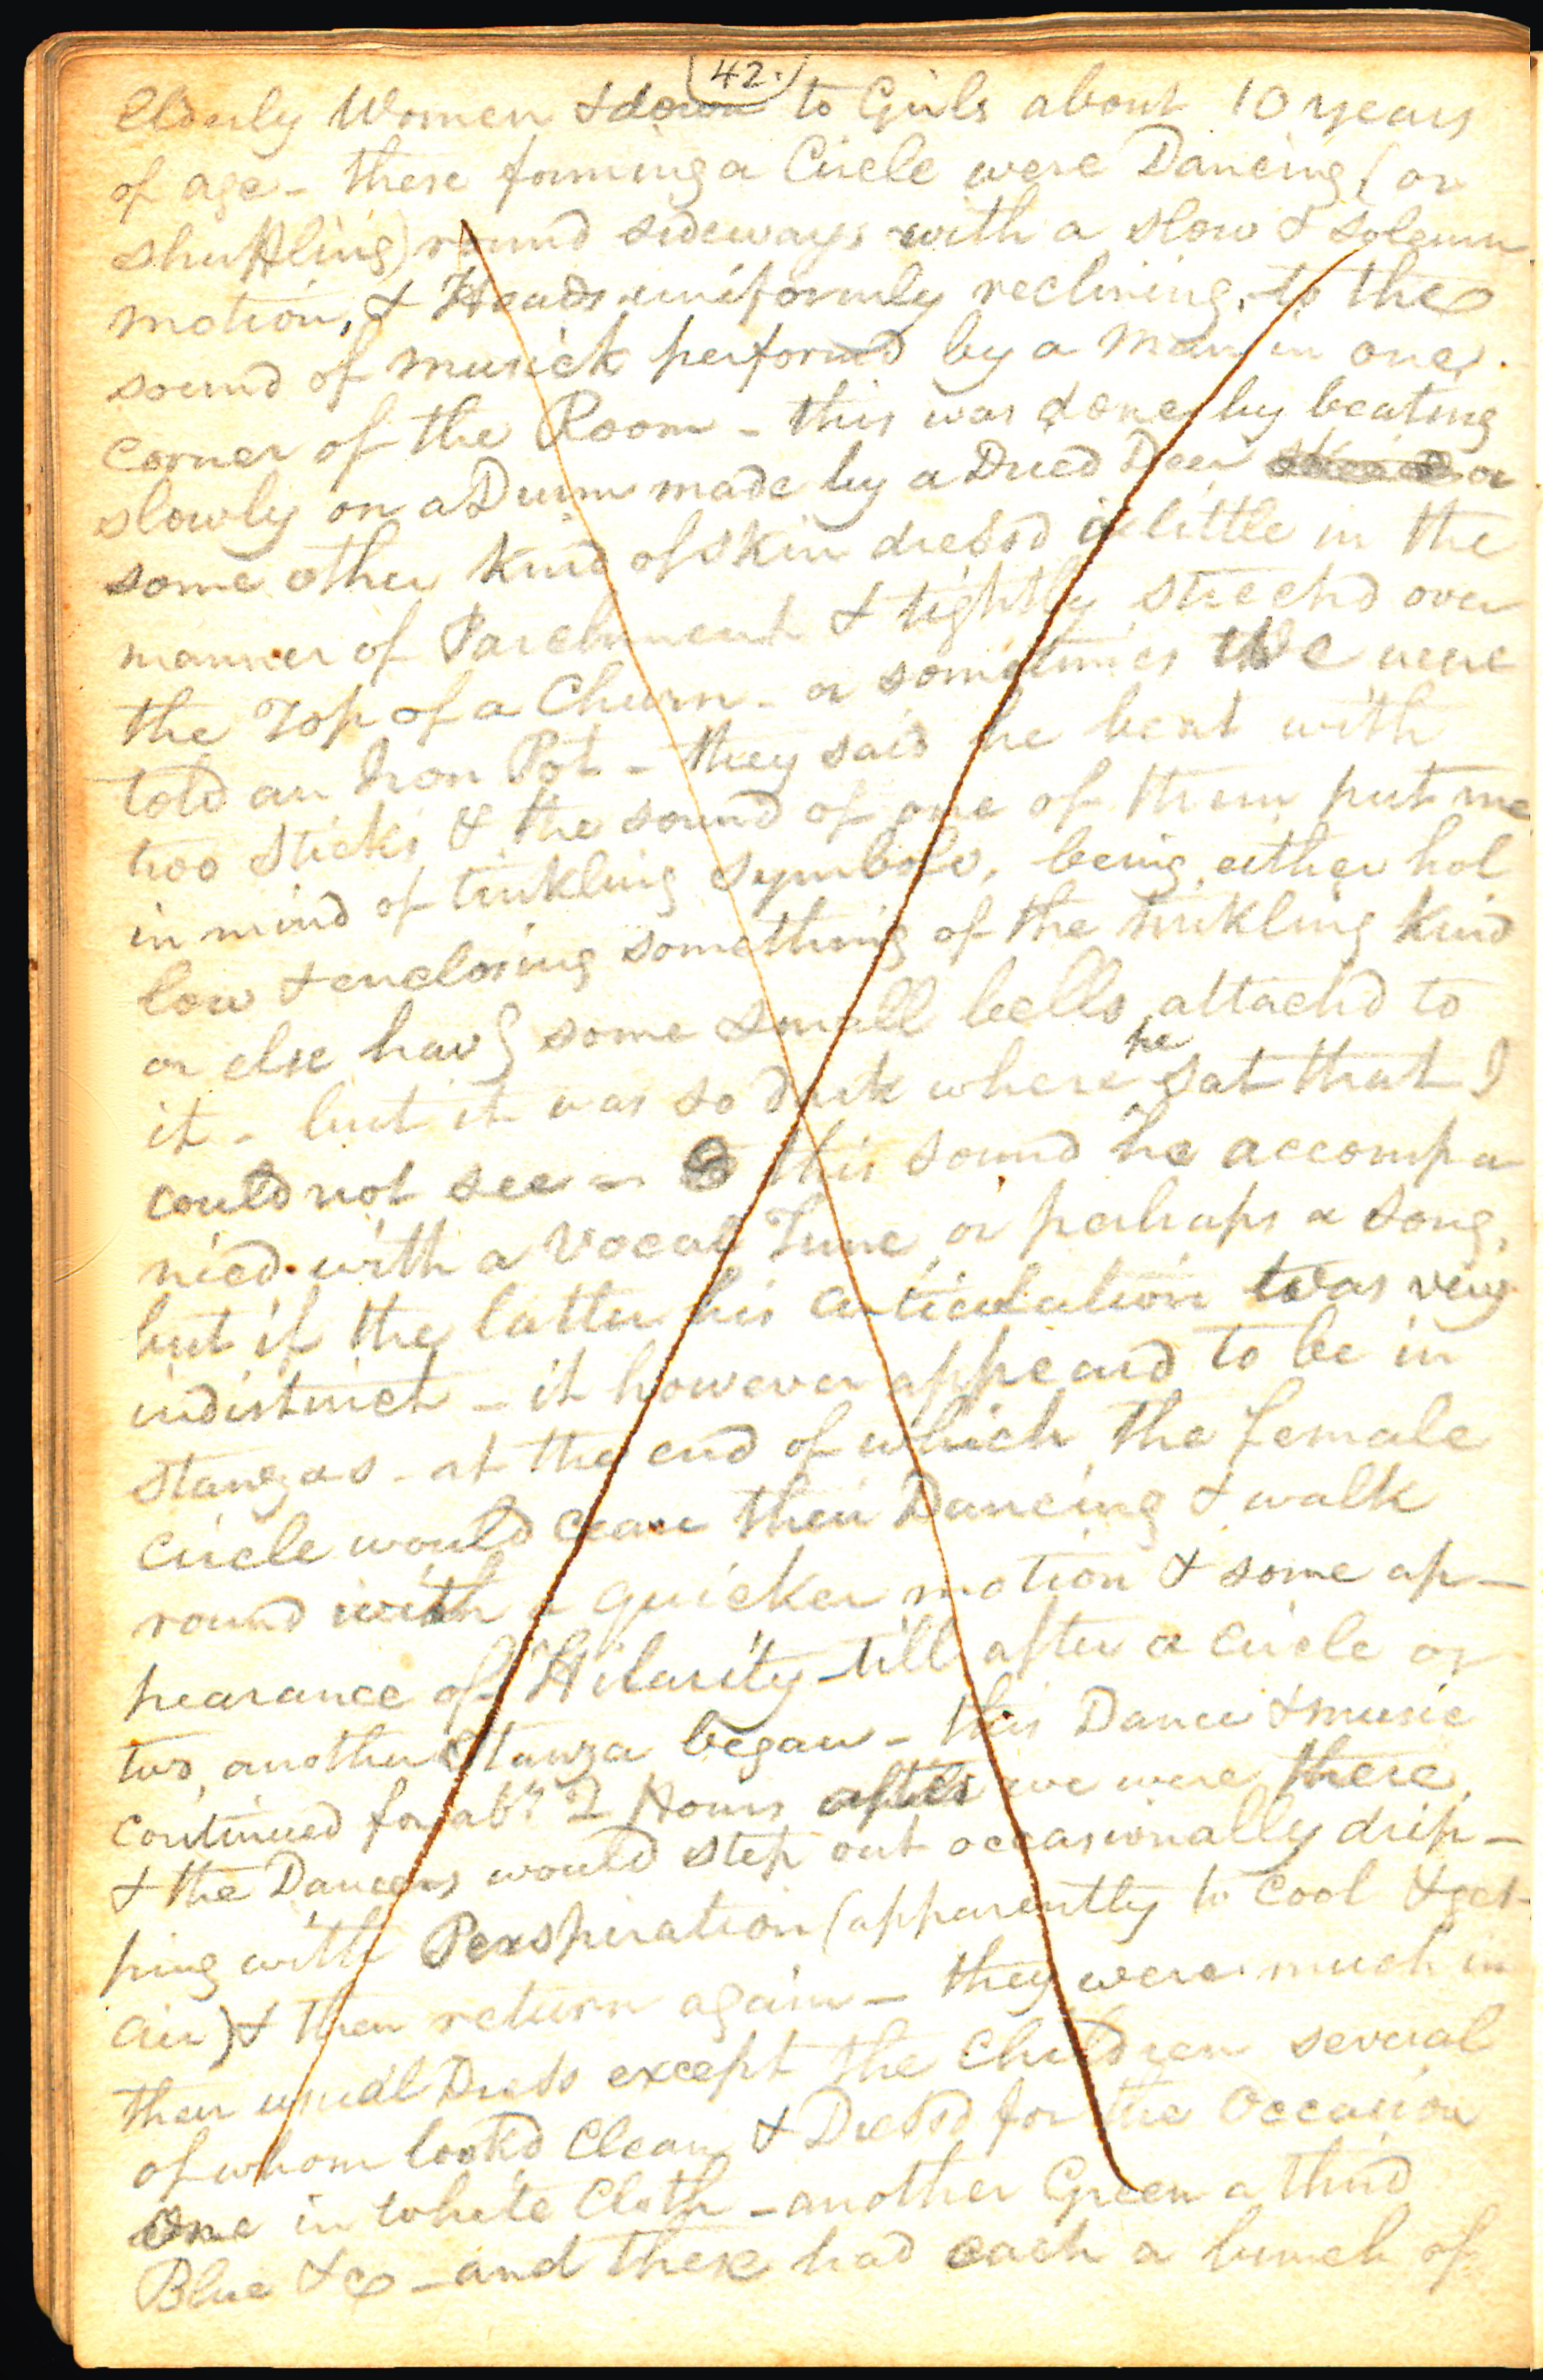 42.
Elderly Women & down to Girls about 10 years
of age - these forming a Circle were Dancing (or
shuffling) round sideways with a slow & solemn
motion, & Heads uniformly reclining, to the
sound of musick performd by a man in one
corner of the Room - this was done by beating
slowly on a Drum made by a Dried Deer or
some other kind of skin dressd a little in the
manner of Parchment & tightly streechd over
the Top of a Churn - or sometimes We were
told an Iron Pot - they said he beat with
two sticks & the sound of one of them put me
in mind of tinkling symbols, being either hol
low & enclosing something of the tinkling kind
or else havg some small bells attachd to
it - but it was so dark where he sat that I
could not see - this sound he accompa
nied with a Vocal Tune, or perhaps a song,
but if the latter his articulation was very
indistinct - it however appeard to be in
stanzas - at the end of which the female
circle would cease their Dancing & walk
round with a quicker motion & some ap-
pearance of Hilarity till after a circle or
two, another Stanza began - this Dance & music
continued for abt. 2 Hours after we were there,
& the Dancers would step out occasionally drip-
ping with Perspiration (apparently to cool & get
air) & then return again - they were much in
their usual Dress except the Children several
of whom lookd Clean & Dressd for the Occasion
One in white Cloth - another Green a third
Blue &c - and these had each a bunch of